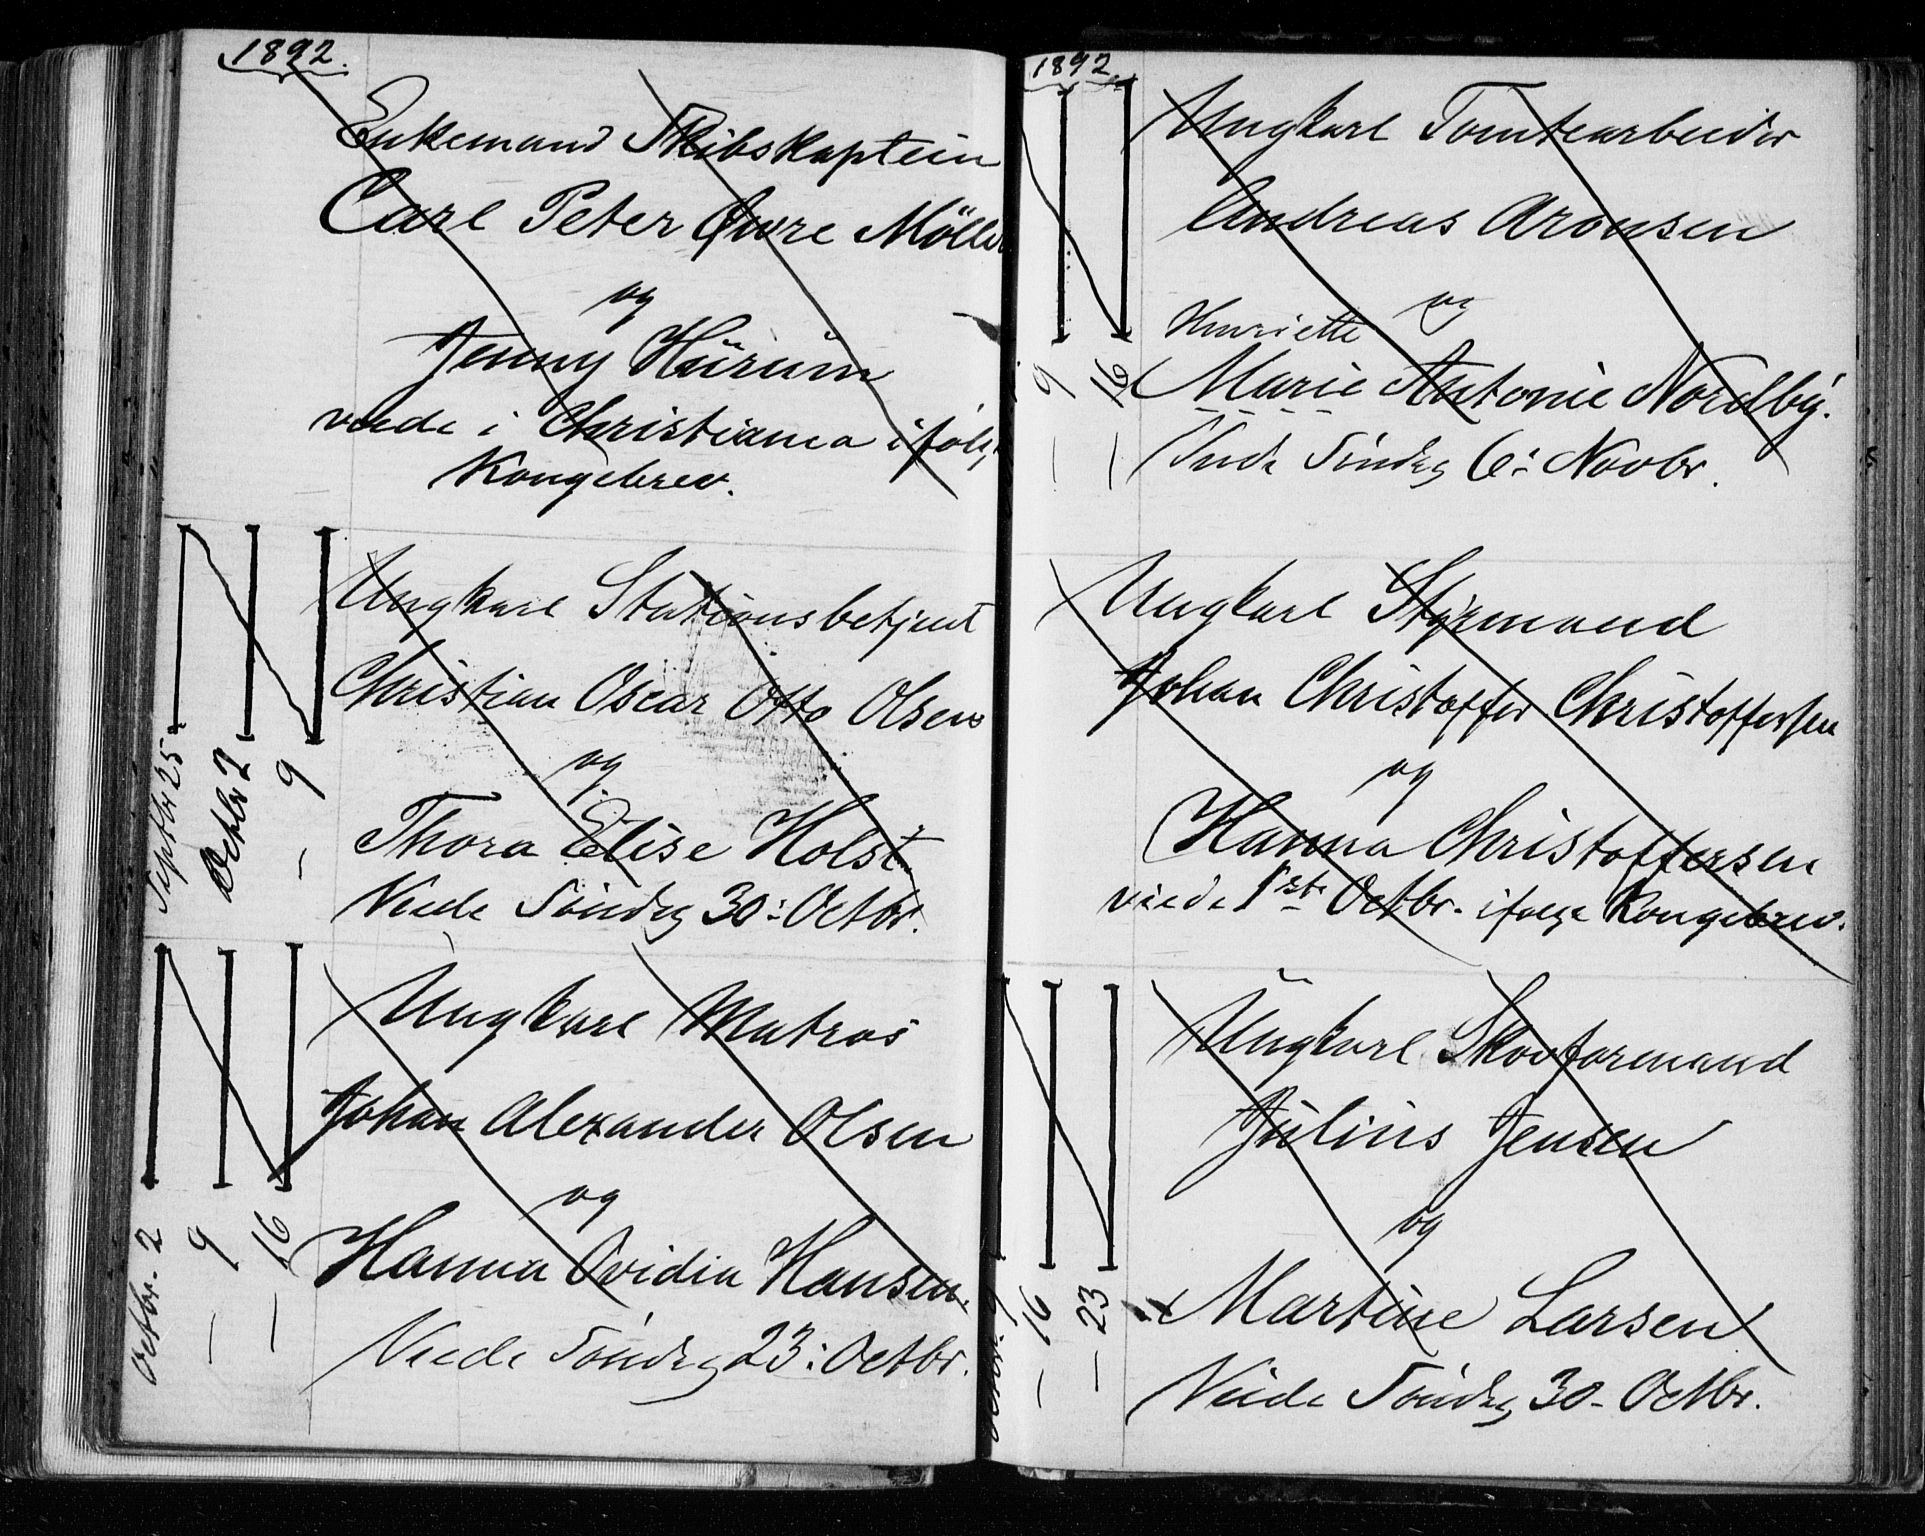 1892.
Enkemand Skibskaptein
Carl Peter Møller
og
Jenny Hurum
viede i Christiania ifølg
Kongebrev.
Septbr 25
Octbr 2
— 9
Ungkarl Stationsbetjent
Christian Oscar Otto Olsen
og
Thora Elise Holst.
Viede Søndag 30: Octbr.
Octbr. 2
— 9
— 16
Ungkarl Matros
Johan Alexander Olsen
og
Hanna Ovidia Hansen.
Viede Søndag 23: Octbr.
1892.
— 9
— 16
Ungkarl Tomtearbeider
Andreas Aronsen
og
Henriette
Marie Antonie Nordby.
Viede Søndag 6: Novbr.
Ungkarl Styrmand
Johan Christoffer Christoffersen
og
Hanna Christoffersen
viede 1ste Octbr. ifølge Kongebrev.
Octbr. 9
— 16
— 23
Ungkarl Skovformand
Julius Jensen
og
Martine Larsen
Viede Søndag 30- Octbr.